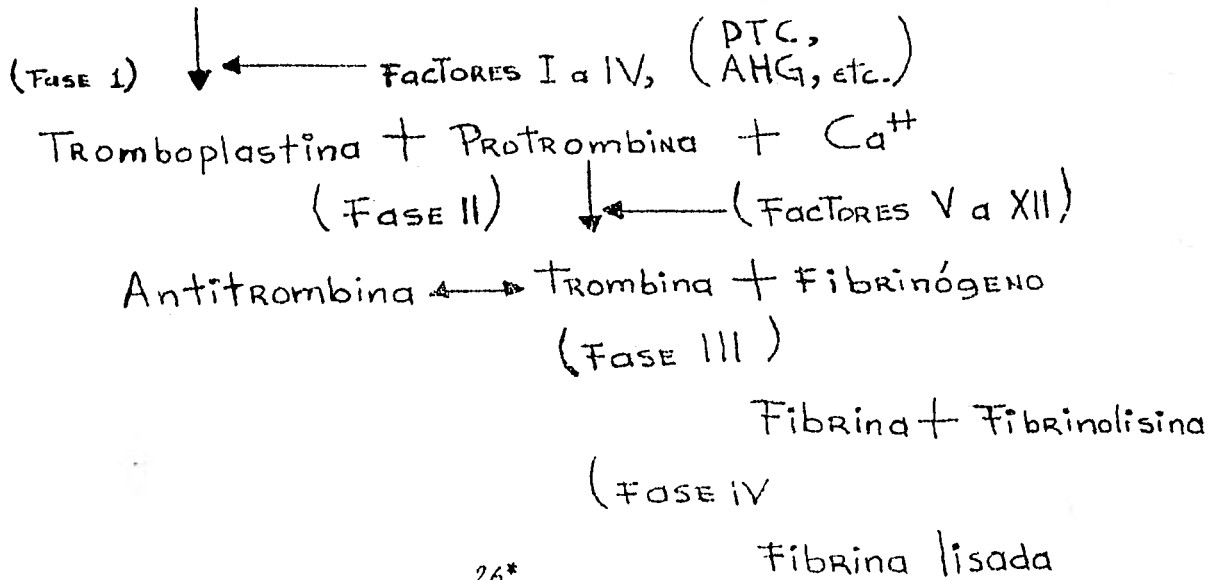 PTC,
(Fase 1) Factores I a IV, ( AHG, etc.)
Tromboplastina + Protrombina + Ca++
(Fase II) (Factores V a XII)
Antitrombina ↔ Trombina + Fibrinógeno
(Fase III)
Fibrina + Fibrinolisina
(Fase iV
Fibrina lisada
26*